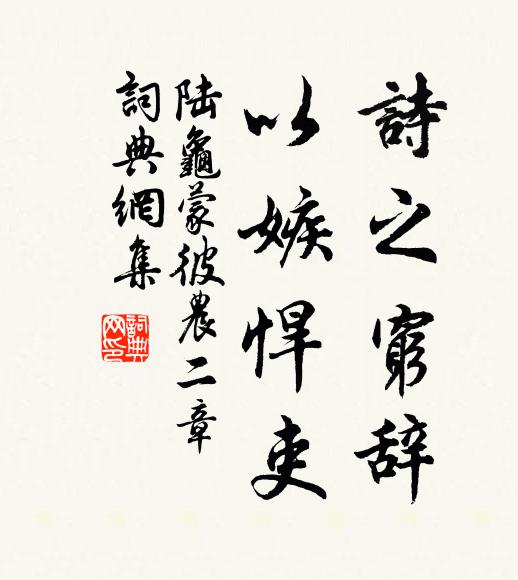 詩之窮辞
以嫉悍吏
陸龜蒙彼農二章
詞典網集
詞典
网印